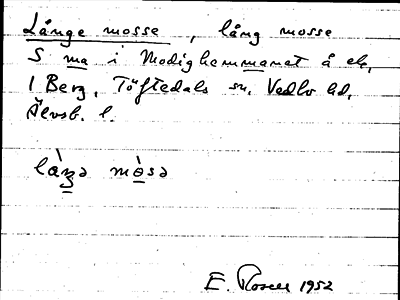 Långe mosse, lång mosse
S ma i Modighemmanet å ek,
1 Berg, Töftedals sn, Vedbo hd,
Älvsb. l.
làŋ̠ə mòsə
E. Rosell 1952